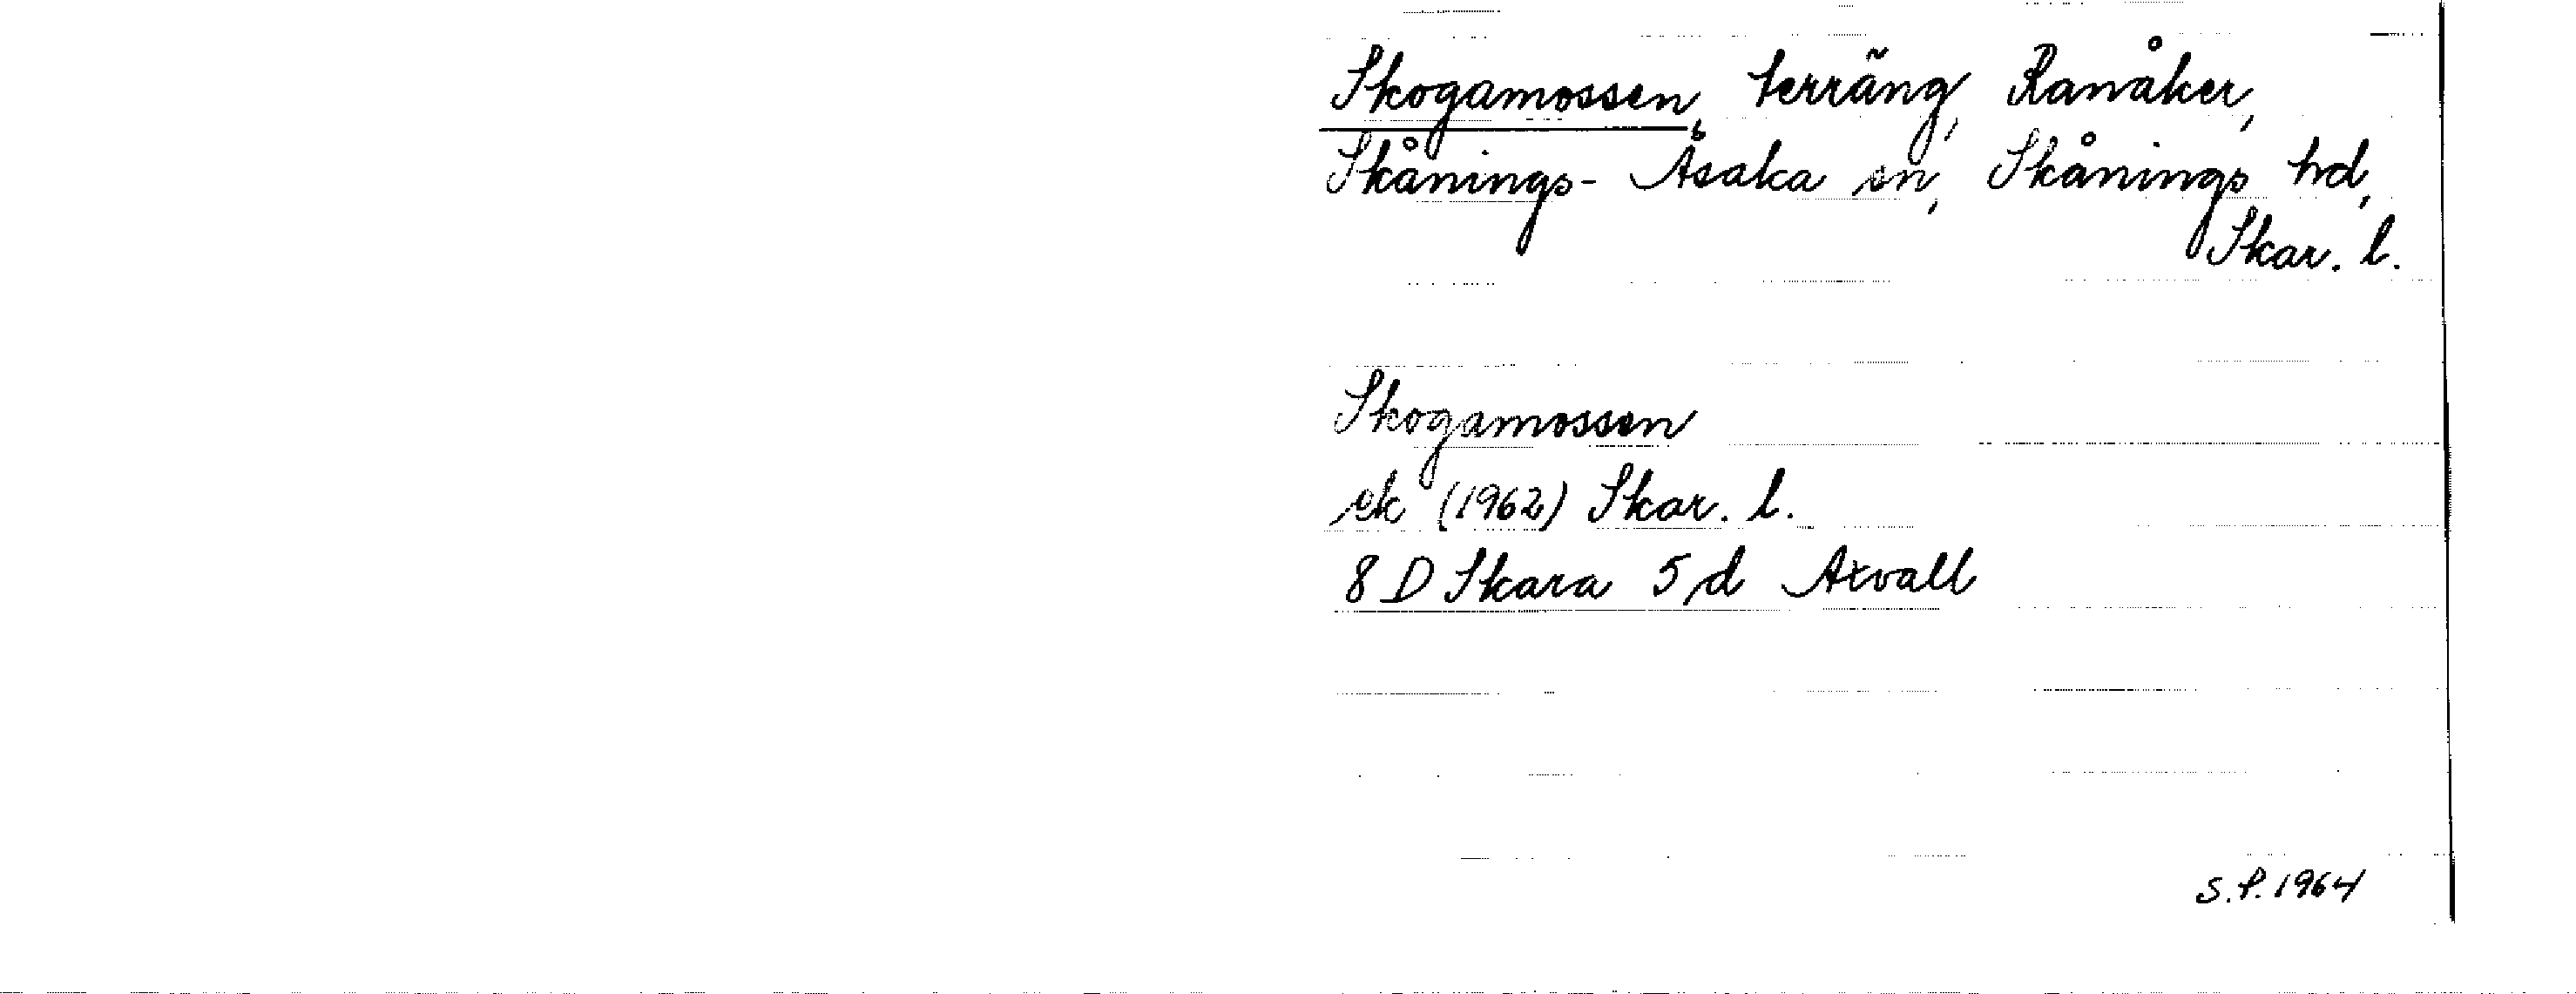 Skogamossen, terräng, Ranåker,
Skånings-Åsaka sn, Skånings hd,
Skar. l.
Skogamossen
ek (1962) Skar. l.
8 D Skara 5 d Axvall
S.P. 1964